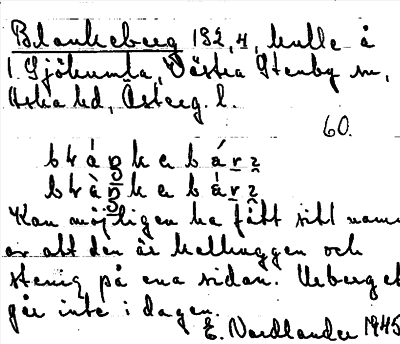 Blankeberg 132,4, kulle å
1 Sjökumla, Västra Stenby sn,
Aska hd, Österg. l.
60.
Kan möjligen ha fått sitt namn
av att den är kalhuggen och
stenig på ena sidan. Ueberget
går inte i dagen.
E. Nordlander 1945